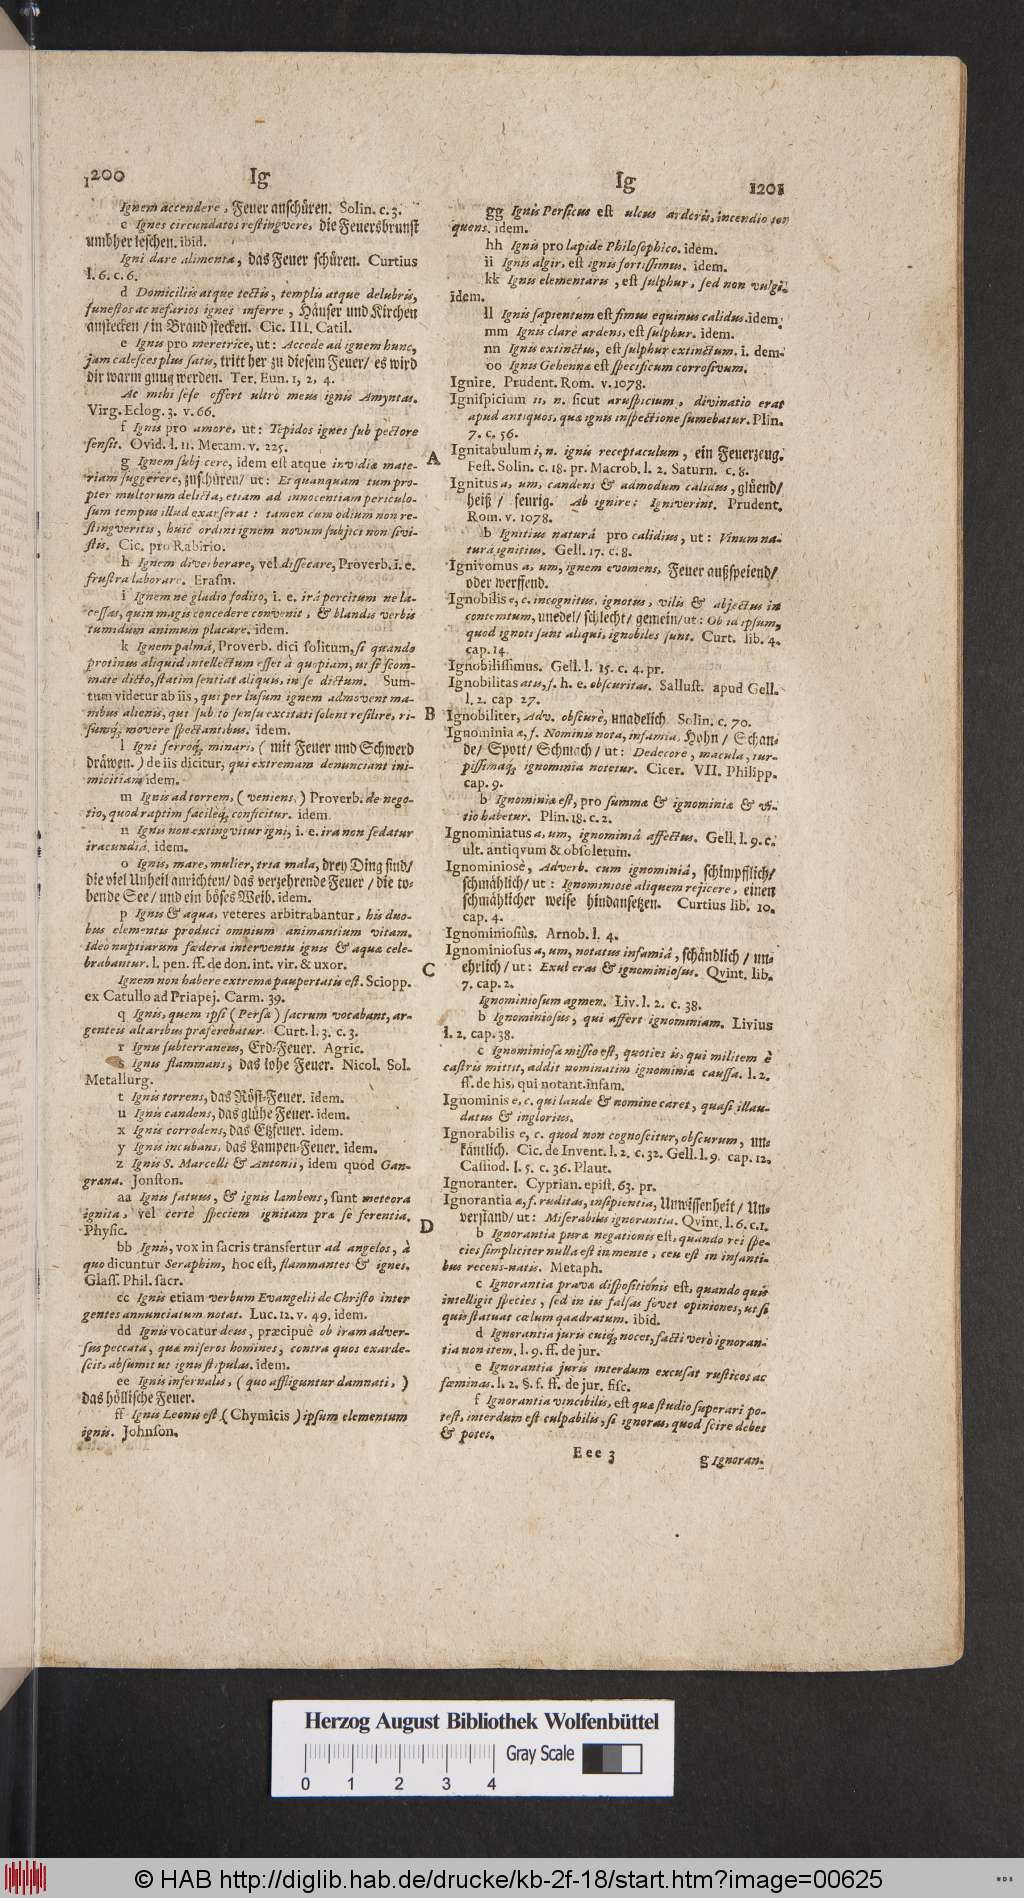 1200 Ig
Ignem accendere, Feuer anschüren. Solin. c. 3.
c Ignes circundatos restingvere, die Feuersbrunst
umbher leschen. ibid.
Igni dare alimenta, das Feuer schüren. Curtius
l. 6. c. 6.
d Domiciliis atque tectis, templis atque delubris,
funestos ac nefarios ignes inferre, Häuser und Kirchen
anstecken / in Brand stecken. Cic. III. Catil.
e Ignis pro meretrice, ut: Accede ad ignem hunc,
jam calesces plus satis, tritt her zu diesem Feuer / es wird
dir warm gnug werden. Ter. Eun. 1, 2, 4.
At mihi sese offert ultrò meus ignis Amyntas.
Virg. Eclog. 3. v. 66.
f Ignis pro amore, ut: Tepidos ignes sub pectore
sensit. Ovid. l. 11. Metam. v. 225.
g Ignem subjicere, idem est atque invidiæ mate-
riam suggerere, zuschüren / ut: Et quanquam tum pro-
pter multorum delicta, etiam ad innocentiam periculo-
sum tempus illud exarserat: tamen cum odium non re-
stingveritis, huic ordini ignem novum subjici non sivi-
stis. Cic. pro Rabirio.
h Ignem diverberare, vel dissecare, Proverb. i. e.
frustra laborare. Erasm.
i Ignem ne gladio fodito, i. e. irâ percitum ne la-
cessas, quin magis concedere convenit, & blandis verbis
tumidum animum placare. idem.
k Ignem palmâ, Proverb. dici solitum, si quando
protinus aliquid intellectum esset à quopiam, ut si scom-
mate dicto, statim sentiat aliquis, in se dictum. Sum-
tum videtur ab iis, qui per lusum ignem admovent ma-
nibus alienis, qui subito sensu excitati solent resilire, ri-
sumq; movere spectantibus. idem.
l Igni ferroq; minari, ( mit Feuer und Schwerd
dräwen. ) de iis dicitur, qui extremam denunciant ini-
micitiam idem.
m Ignis ad torrem, ( veniens, ) Proverb. de nego-
tio, quod raptim facileq; conficitur. idem
n Ignis non extingvitur igni, i. e. ira non sedatur
iracundiâ. idem.
o Ignis, mare, mulier, tria mala, drey Ding sind /
die viel Unheil anrichten / das verzehrende Feuer / die to-
bende See / und ein böses Weib. idem.
p Ignis & aqua, veteres arbitrabantur, his duo-
bus elementis produci omnium animantium vitam.
Ideo nuptiarum fœdera interventu ignis & aquæ cele-
brabantur. l. pen. ff. de don. int. vir. & uxor.
Ignem non habere extremæ paupertatis est. Sciopp.
ex Catullo ad Priapej. Carm. 39.
q Ignis, quem ipsi ( Persæ ) sacrum vocabant, ar-
genteis altaribus præferebatur. Curt. l. 3. c. 3.
r Ignis subterraneus, Erd-Feuer. Agric.
s Ignis flammans, das lohe Feuer. Nicol. Sol.
Metallurg.
t Ignis torrens, das Röst-Feuer. idem.
u Ignis candens, das glühe Feuer. idem.
x Ignis corrodens, das Etzfeuer. idem.
y Ignis incubans, das Lampen-Feuer. idem.
z Ignis S. Marcelli & Antonii, idem quod Gan-
græna. Jonston.
aa Ignis fatuus, & ignis lambens, sunt meteora
ignita, vel certè speciem ignitam præ se ferentia.
Physic.
bb Ignis, vox in sacris transfertur ad angelos, à
quo dicuntur Seraphim, hoc est, flammantes & ignes.
Glass. Phil. sacr.
cc Ignis etiam verbum Evangelii de Christo inter
gentes annunciatum notat. Luc. 12. v. 49. idem.
dd Ignis vocatur deus, præcipuè ob iram adver-
sus peccata, quæ miseros homines, contra quos exarde-
scit, absumit ut ignis stipulas. idem.
ee Ignis infernalis, ( quo affliguntur damnati, )
das höllische Feuer.
ff Ignis Leonis est ( Chymicis ) ipsum elementum
ignis. Johnson.
A
B
C
D
Ig 1201
gg Ignis Persicus est ulcus ardens, incendio tor
quens. idem.
hh Ignis pro lapide Philosophico. idem.
ii Ignis algir, est ignis fortissimus. idem.
kk Ignis elementaris, est sulphur, sed non vulgi.
idem.
ll Ignis sapientum est fimus equinus calidus. idem.
mm Ignis clarè ardens, est sulphur. idem.
nn Ignis extinctus, est sulphur extinctum. i. dem.
oo Ignis Gehennæ est specificum corrosivum.
Ignire. Prudent. Rom. v. 1078.
Ignispicium ii, n. sicut aruspicium, divinatio erat
apud antiquos, quæ ignis inspectione sumebatur. Plin.
7. c. 56.
Ignitabulum i, n. ignis receptaculum, ein Feuerzeug.
Fest. Solin. c. 18. pr. Macrob. l. 2. Saturn. c. 8.
Ignitus a, um, candens & admodum calidus, glüend /
heiß / feurig. Ab ignire: Igniverint. Prudent.
Rom. v. 1078.
b Ignitius naturâ pro calidius, ut: Vinum na-
turâ ignitius. Gell. 17. c. 8.
Ignivomus a, um, ignem evomens, Feuer außspeiend /
oder werffend.
Ignobilis e, c. incognitus, ignotus, vilis & abjectus in
contemtum, unedel / schlecht / gemein / ut: Ob id ipsum,
quod ignoti sunt aliqui, ignobiles sunt. Curt. lib. 4.
cap. 14
Ignobilissimus. Gell. l. 15. c. 4. pr.
Ignobilitas atis, f. h. e. obscuritas. Sallust. apud Gell.
l. 2. cap 27.
Ignobiliter, Adv. obscurè, unadelich. Solin. c. 70.
Ignominia æ, f. Nominis nota, infamia, Hohn / Schan-
de / Spott / Schmach / ut: Dedecore, macula, tur-
pissimaq; ignominia notetur. Cicer. VII. Philipp.
cap. 9.
b Ignominiæ est, pro summæ & ignominiæ & vi-
tio habetur. Plin. 18. c. 2.
Ignominiatus a, um, ignominiâ affectus. Gell. l. 9. c.
ult. antiqvum & obsoletum.
Ignominiosè, Adverb. cum ignominiâ, schimpfflich /
schmählich / ut: Ignominiosè aliquem rejicere, einen
schmählicher weise hindansetzen. Curtius lib. 10.
cap. 4.
Ignominiosiùs. Arnob. l. 4.
Ignominiosus a, um, notatus infamiâ, schändlich / un-
ehrlich / ut: Exul eras & ignominiosus. Qvint. lib.
7. cap. 2.
Ignominiosum agmen. Liv. l. 2. c. 38.
b Ignominiosus, qui affert ignominiam. Livius
l. 2. cap. 38.
c Ignominiosa missio est, quoties is, qui militem è
castris mittit, addit nominatim ignominiæ caussa. l. 2.
ff. de his, qui notant. infam.
Ignominis e, c. qui laude & nomine caret, quasi illau-
datus & inglorius.
Ignorabilis e, c. quod non cognoscitur, obscurum, un-
käntlich. Cic. de Invent. l. 2. c. 32. Gell. l. 9. cap. 12.
Cassiod. l. 5. c. 36. Plaut.
Ignoranter. Cyprian. epist. 63. pr.
Ignorantia æ, f. ruditas, insipientia, Unwissenheit / Un-
verstand / ut: Miserabilis ignorantia. Qvint. l. 6. c. 1.
b Ignorantia puræ negationis est, quando rei spe-
cies simpliciter nulla est in mente, ceu est in infanti-
bus recens-natis. Metaph.
c Ignorantia pravæ dispositionis est, quando quis
intelligit species, sed in iis falsas fovet opiniones, ut si
quis statuat cœlum quadratum. ibid.
d Ignorantia juris cuiq; nocet, facti verò ignoran-
tia non item. l. 9. ff. de jur.
e Ignorantia juris interdum excusat rusticos ac
fœminas. l. 2. §. f. ff. de jur. fisc.
f Ignorantia vincibilis, est quæ studio superari po-
test, interdum est culpabilis, si ignoras, quod scire debes
& potes.
Eee 3 g Ignoran-
Herzog August Bibliothek Wolfenbüttel
Gray Scale
0 1 2 3 4
© HAB http://diglib.hab.de/drucke/kb-2f-18/start.htm?image=00625